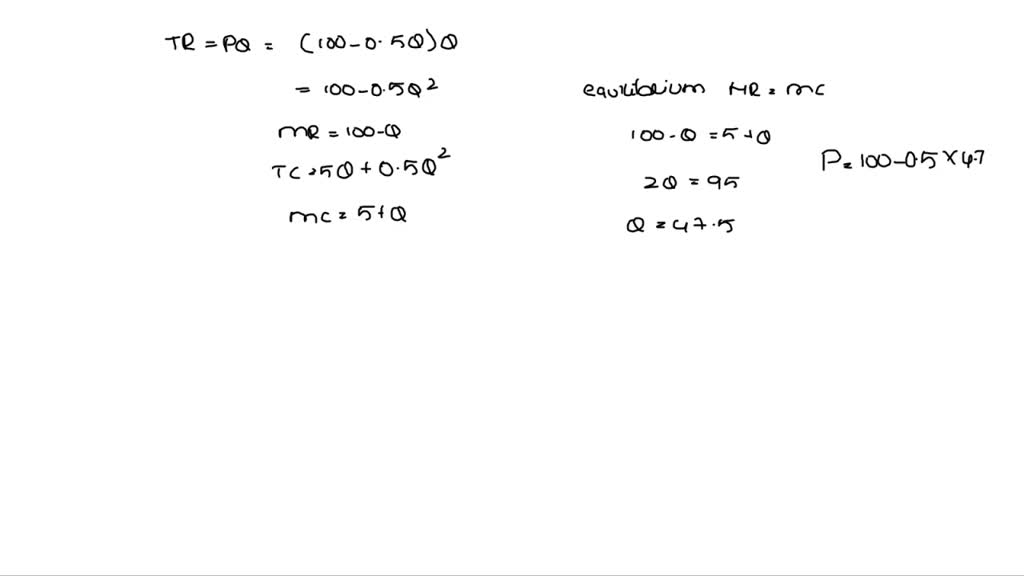 TR = PQ = (100-0.5Q)Q
= 100-0.5Q²
MR = 100-Q
TC = 5Q + 0.5Q²
MC = 5+Q
equilibrium MR = MC
100-Q = 5+Q
2Q = 95
Q = 47.5
P = 100-0.5×47